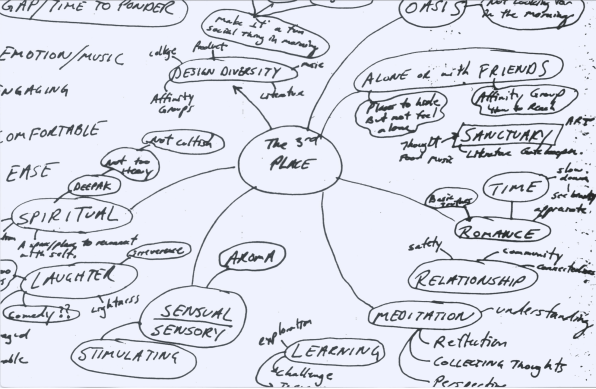 GAP/TIME TO PONDER
EMOTION/MUSIC
ENGAGING
COMFORTABLE
EASE
make it a fun
social thing in morning
college
Product
music
DESIGN DIVERSITY
Affinity
Groups
Literature
OASIS
Not looking for
in the morning
ALONE or with FRIENDS
Place to hide
But not feel
alone
Affinity Group
How to Reach
ART
SANCTUARY
Thought
Food
music
Literature
The 3rd
PLACE
Not cultish
Not too
Heavy
DEEPAK
SPIRITUAL
A space/place to reconnect
with self.
irreverence
LAUGHTER
Comedy??
Lightness
AROMA
SENSUAL
SENSORY
STIMULATING
TIME
slow
down
see beauty
appreciate.
ROMANCE
safety
community
RELATIONSHIP
MEDITATION
understanding
Reflection
COLLECTING Thoughts
Perspective
exploration
LEARNING
challenge